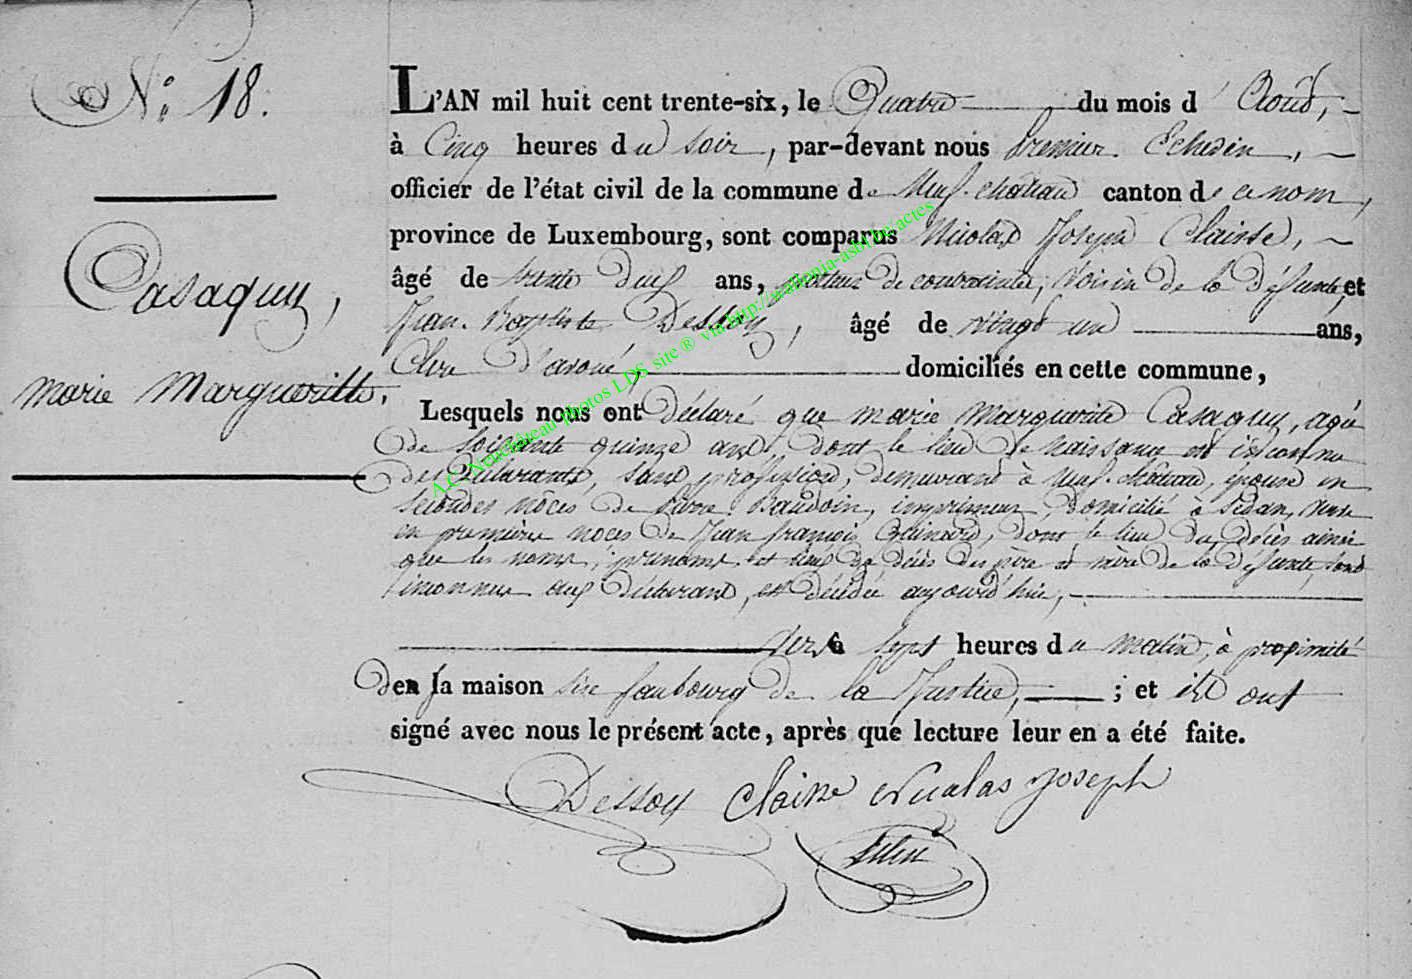 N.° 18.
Casaquy,
Marie Margueritte.
L'AN mil huit cent trente-six, le Quatre du mois d'Août,
à Cinq heures du soir, par-devant nous premier Echevin,
officier de l'état civil de la commune de Neufchateau canton de ce nom,
province de Luxembourg, sont comparus Nicolas Joseph Clainse,
âgé de trente deux ans, porteur de contraintes, voisin de la défunte, et
Jean Baptiste Dessoy, âgé de vingt un ans,
Clerc d'avoué, domiciliés en cette commune,
Lesquels nous ont déclaré que marie Marguerite Casaquy, agée
de soixante quinze ans, dont le lieu de naissance est inconnu
des déclarants, sans profession, demeurant à Neufchateau, épouse en
secondes nôces de Pierre Baudoin, imprimeur, domicilié à Sedan, veuve
en première noces de Jean françois, dont le lieu du décès ainsi
que les noms, prénoms et lieu de décès des père et mère de la défunte, sont
inconnus aux déclarants, est décédée aujourd'hui,
vers sept heures du matin, à proximité
de sa maison sise faubourg de la Justice, ; et ils ont
signé avec nous le présent acte, après que lecture leur en a été faite.
Dessoy Clainse Nicolas Joseph
A.C. Neufchâteau photos LDS site ® via http://wallonia-asbl.be/actes